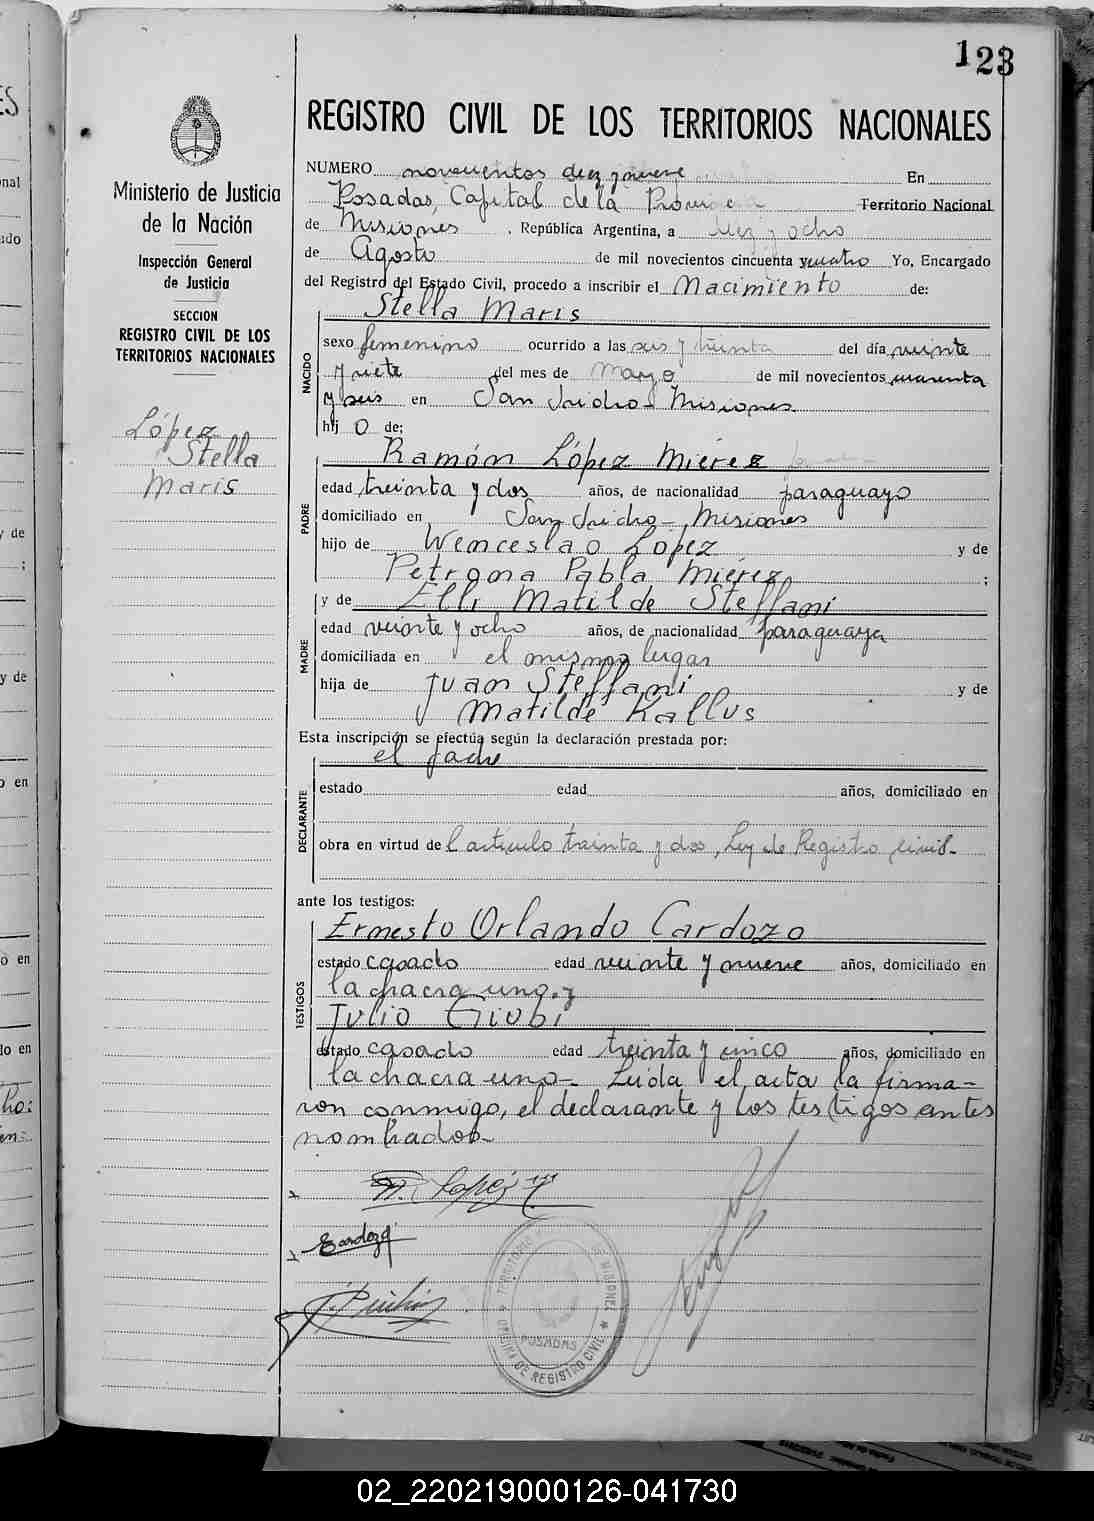 123
REGISTRO CIVIL DE LOS TERRITORIOS NACIONALES
Ministerio de Justicia
de la Nación
Inspección General
de Justicia
SECCION
REGISTRO CIVIL DE LOS
TERRITORIOS NACIONALES
López
Stella
Maris
NUMERO novecientos diez y nueve En
Posadas, Capital de la Provincia Territorio Nacional
de Misiones , República Argentina, a diez y ocho
de Agosto de mil novecientos cincuenta y cuatro Yo, Encargado
del Registro del Estado Civil, procedo a inscribir el Nacimiento de:
Stella Maris
NACIDO
sexo femenino ocurrido a las seis y treinta del día veinte
y siete del mes de Marzo de mil novecientos cuarenta
y seis en San Isidro - Misiones
hij o de;
Ramón López Mierez
PADRE
edad treinta y dos años, de nacionalidad paraguayo
domiciliado en San Isidro - Misiones
hijo de Wenceslao López y de
Petrona Pabla Mierez ;
y de Elli Matilde Steffani
MADRE
edad veinte y ocho años, de nacionalidad paraguaya
domiciliada en el mismo lugar
hija de Juan Steffani y de
Matilde Kallus
Esta inscripción se efectúa según la declaración prestada por:
el padre
DECLARANTE
estado edad años, domiciliado en
obra en virtud del artículo treinta y dos, Ley de Registro Civil.-
ante los testigos:
Ernesto Orlando Cardozo
TESTIGOS
estado casado edad veinte y nueve años, domiciliado en
la chacra uno y
Julio Giubi
estado casado edad treinta y cinco años, domiciliado en
la chacra uno - Leida el acta la firma-
ron conmigo, el declarante y los testigos antes
nombrados-
R. López M.
Cardozo
TERRITORIO DE MISIONES
POSADAS
OFICINA DE REGISTRO CIVIL
02_220219000126-041730